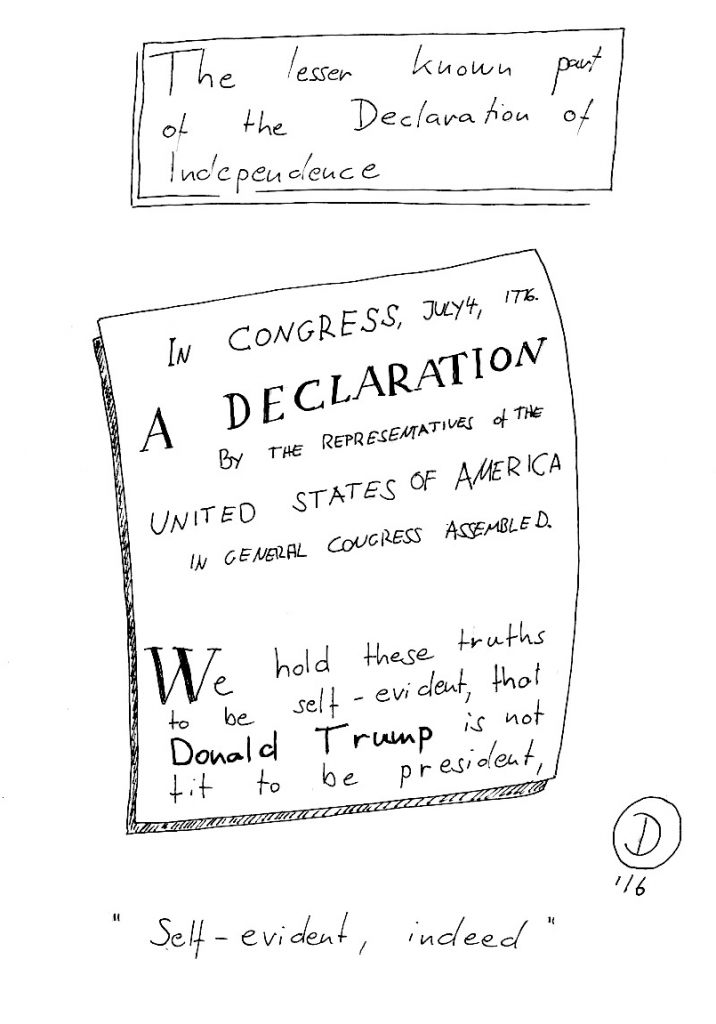 The lesser known part
of the Declaration of
Independence
IN CONGRESS, JULY 4, 1776.
A DECLARATION
BY THE REPRESENTATIVES of THE
UNITED STATES OF AMERICA
IN GENERAL CONGRESS ASSEMBLED.
We hold these truths
to be self-evident, that
Donald Trump is not
fit to be president,
D
'16
"Self-evident, indeed"